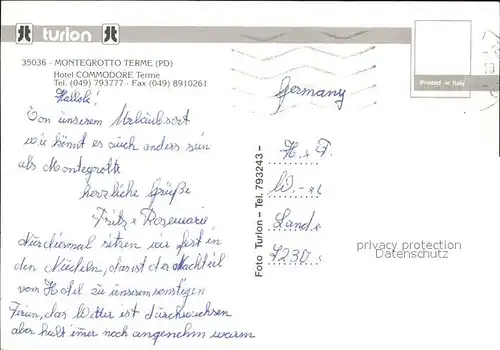 turlon
35036 - MONTEGROTTO TERME (PD)
Hotel COMMODORE Terme
Tel. (049) 793777 - Fax (049) 8910261
Printed in Italy
Germany
Hallole!
Von unserem Urlaubsort
wie könnt es auch anders sein
als Montegrotto
herzliche Grüße
Fritz + Rosemarie
diesmal sitzen wir fest in
den Nudeln, das ist der Nachteil
vom Hotel zu unserem sonstigen
das Wetter ist durchwachsen
aber halt immer noch angenehm warm
Foto Turlon - Tel. 793243 -
H. + F.
W.
Lands
7230
privacy protection
Datenschutz